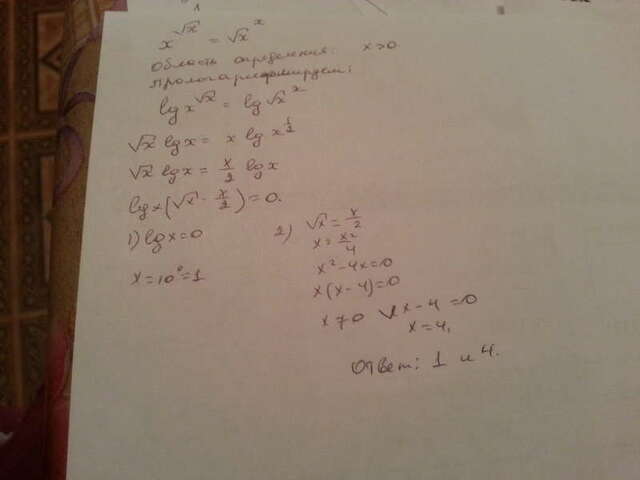 x^√x = √x^x
Область определения: x>0
Прологарифмируем:
lg x^√x = lg √x^x
√x lg x = x lg x^½
√x lg x = x/2 lg x
lg x (√x - x/2) = 0.
1) lg x = 0
x = 10⁰ = 1
2) √x = x/2
x = x²/4
x² - 4x = 0
x(x-4) = 0
x≠0 x-4 = 0
x = 4.
Ответ: 1 и 4.